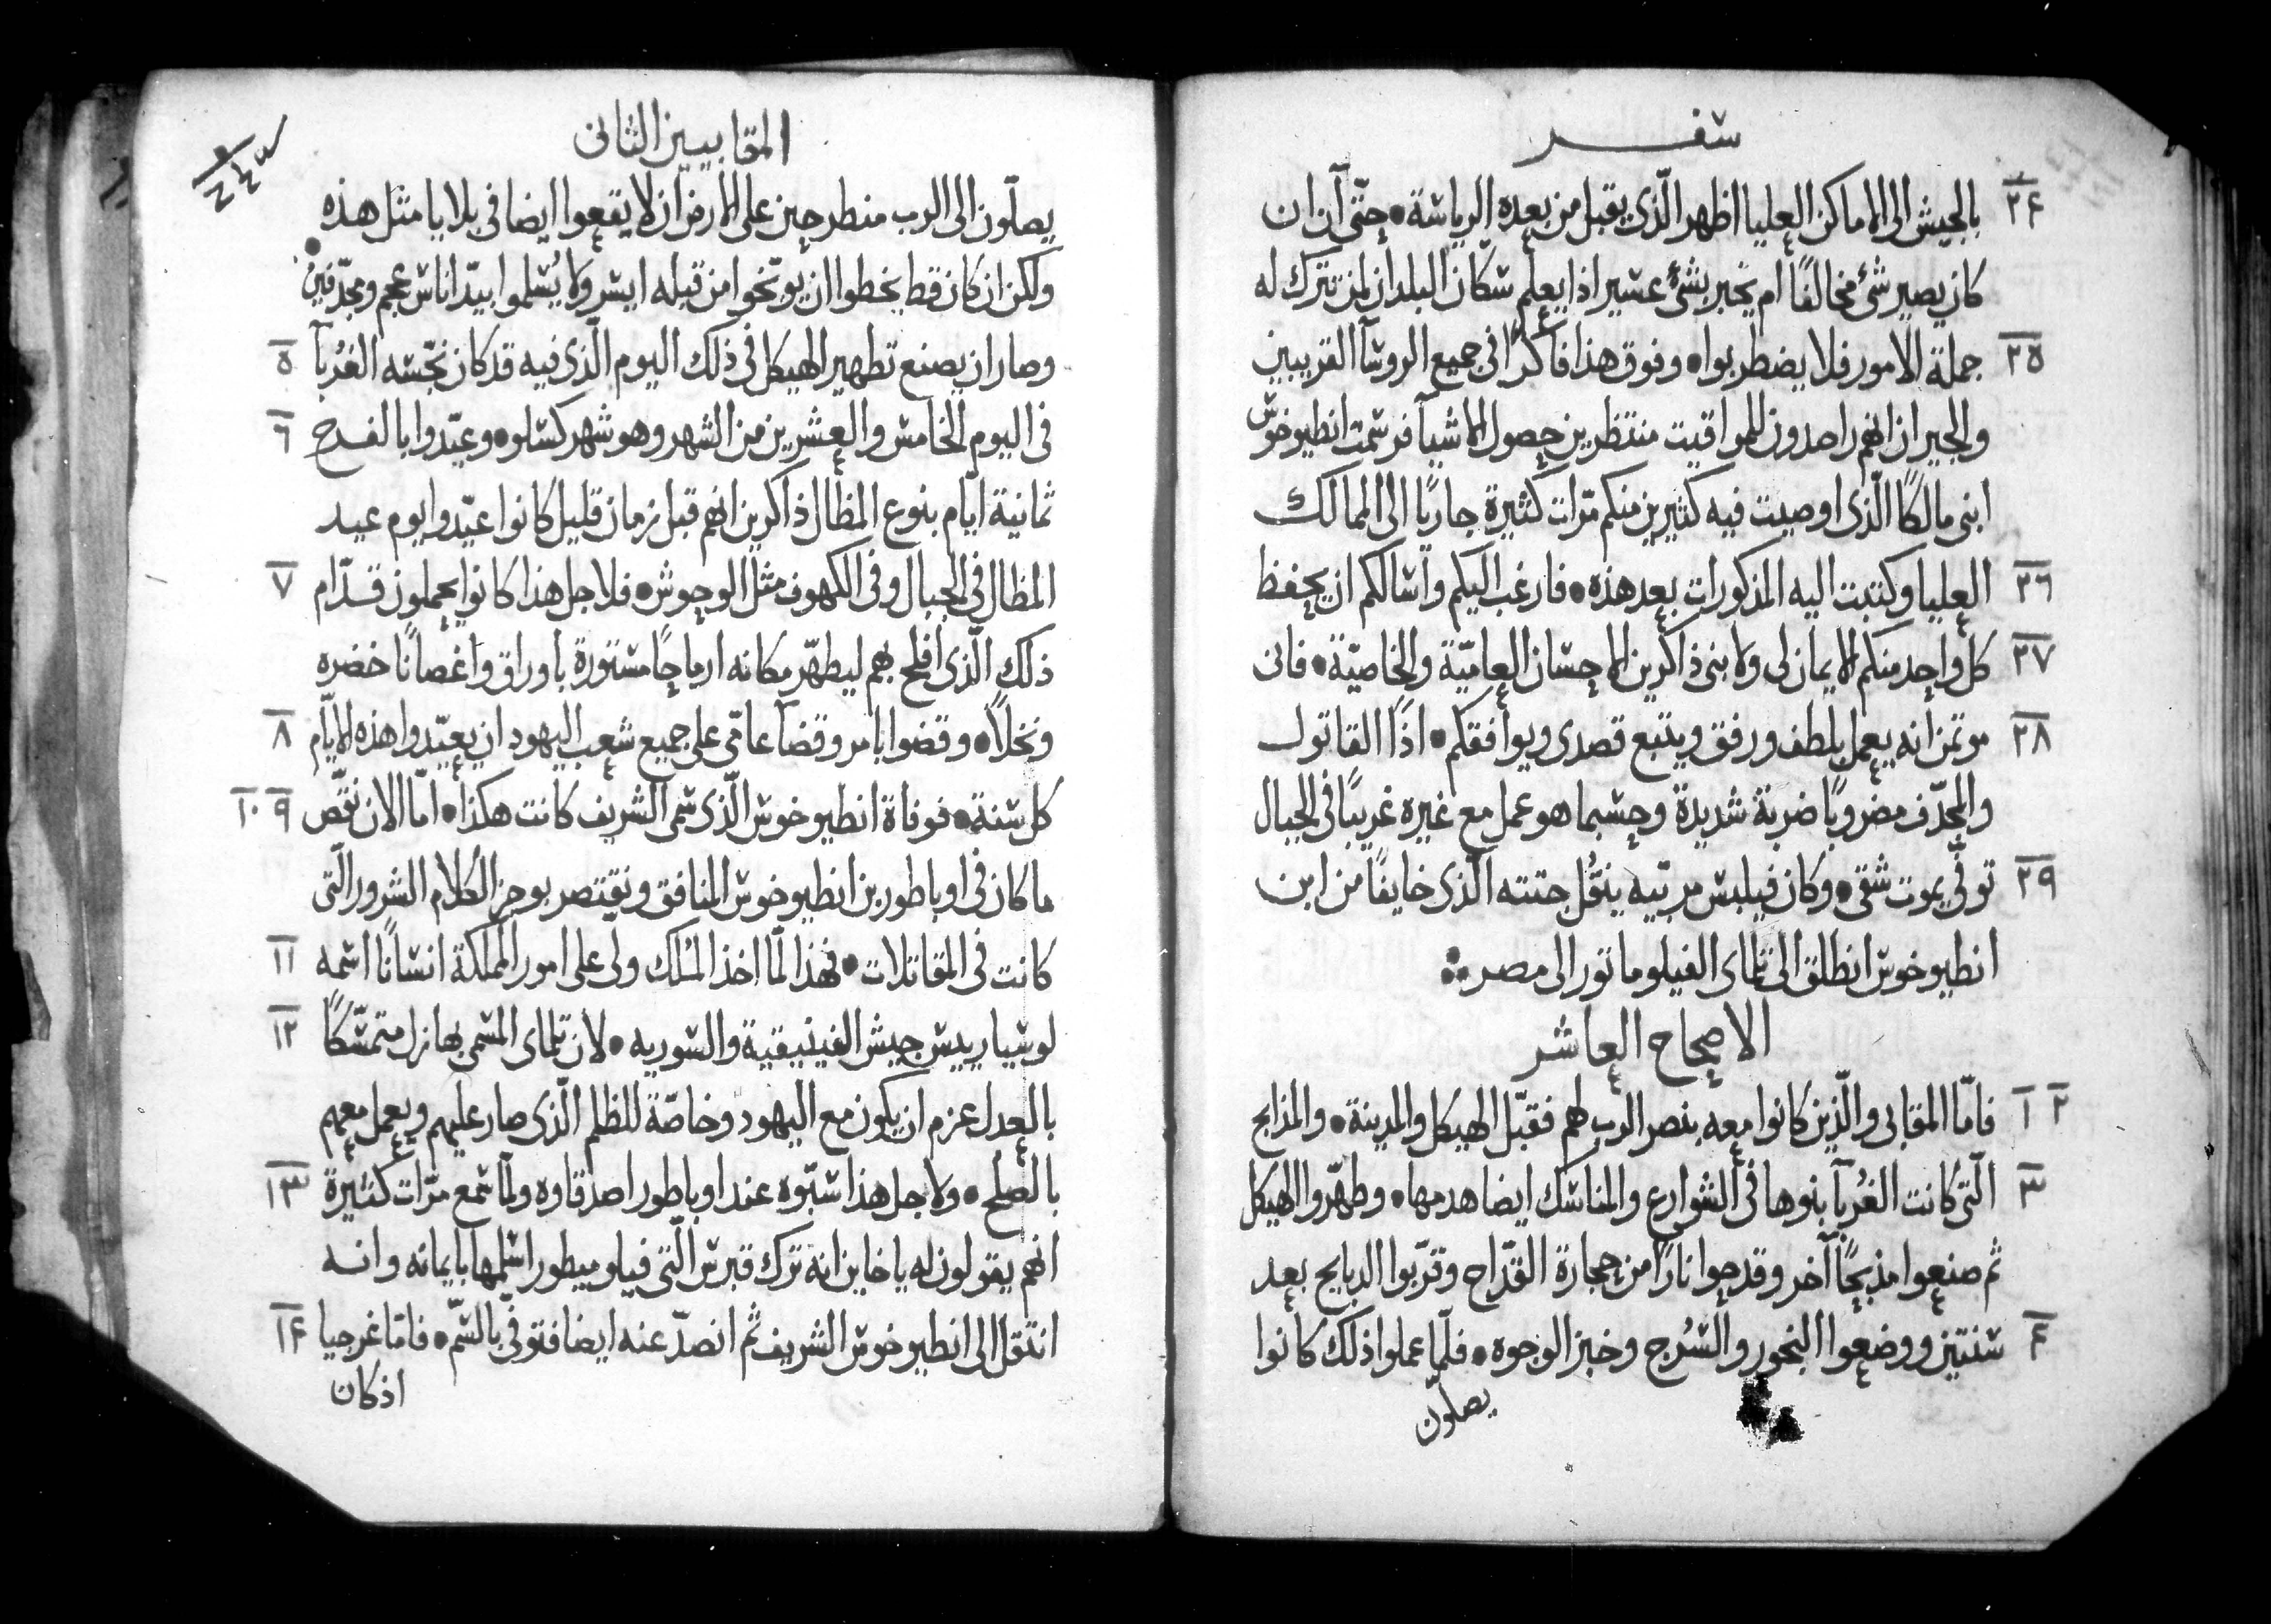 سفر
٢٤ بالجيش الى الاماكن العليا اظهر الّذى يقبل من بعده الرياسة • حتّى آن ان
كان يصير شئ مخالفًا ام يخبر بشئ عسير اذا يعلم سكّان البلدان لمن تترك له
٢٥ جملة الامور فلا يضطربوا • وفوق هذا فاكرًا فى جميع الروسآ القريبين
والجيران انهم راصدون للمواقيت منتظرين حصول الاشيآ فرسمت انطيوخوس
ابنى مالكًا الّذى اوصيت فيه كثيرين منكم مرّات كثيرة جاريًا الى الممالك
٢٦ العليا وكتبت اليه المذكورات بعد هذه • فارغب اليكم واسالكم ان يحفظ
٢٧ كل واحد منكم الايمان لى ولابنى ذاكرين الاحسان العاميّة والخاصيّة • فانى
٢٨ موتمن انه يعمل بلطف ورفق ويتبع قصدى ويوافقكم • اذًا القاتول
والمجدّف مضروبًا ضربة شديدة وحسبما هو عمل مع غيره غريبًا فى الجبال
٢٩ توفّى بموت شقى • وكان فيلبس مربّيه ينقُل جتته الّذى خايفًا من ابن
انطيوخوس انطلق الى تلماى الفيلوماتور الى مصر
الاصحاح العاشر
١ ٢ فامّا المقابى والّذين كانوا معه بنصر الرب لهم فقبّل الهيكل والمدينة • والمذابح
٣ الّتى كانت الغُربآ بنوها فى الشوارع والمناسك ايضا هدمها • وطهّروا الهيكل
ثم صنعوا مذبحًا آخر وقدحوا نارًا من حجارة القدّاح وقرّبوا الدبايح بعد
٤ سنتين ووضعوا البخور والسُرج وخبز الوجوه • فلمّا عملوا ذلك كانوا
يصلّون
المقابيين الثانى
يصلّون الى الرب منطرحين على الارض ان لا يقعوا ايضا فى بلايا مثل هذه •
ولكن ان كان قط يخطوا ان يوبّخوا من قبله ايسر ولا يُسلموا بيدّ اناس عجم ومجدّفين
٥ وصار ان يصنع تطهير الهيكل فى ذلك اليوم الّذى فيه قد كان نجّسه الغُربآ
٦ فى اليوم الخامس والعشرين من الشهر وهو شهر كسلو • وعيّدوا بالفرح
ثمانية ايّام بنوع المظال ذاكرين انهم قبل زمان قليل كانوا عيّدوا يوم عيد
٧ المظال فى الجبال وفى الكهوف مثل الوحوش • فلاجل هذا كانوا يحملون قدّام
ذلك الّذى افلح بهم ليطهّر مكانه ارماحًا مستورة باوراق واغصانًا خضره
٨ ونخلاً • وقضوا بامر وقضآ عامّى على جميع شعب اليهود ان يعيّدوا هذه الايّام
٩ ١٠ كل سنة • فوفاة انطيوخوس الّذى سمى الشريف كانت هكذا • امّا الان نقصّ
ما كان فى اوباطور بن انطيوخوس المنافق ونقتصر بوجز الكلام الشرور الّتى
١١ كانت فى المقاتلات • فهذا لمّا اخذ المُلك ولى على امور المملكة انسانًا اسمه
١٢ لوسيا رييس جيش الفينيقية والسوريه • لان تلماى المسمى بها نزل متمسّكًا
بالعدل عزم ان يكون مع اليهود وخاصّة للظلم الّذى صار عليهم ويعمل معهم
١٣ بالصلح • ولاجل هذا سبّوه عند اوباطور اصدقاوه ولمّا سمع مرّات كثيرة
انهم يقولون له يا خاين انه ترك قبرس الّتى فيلوميطور اسلمها بايمانه وانه
١٤ انتقل الى انطيوخوس الشريف ثم انصدّ عنه ايضا فتوفّى بالسّم • فامّا غرجيا
اذ كان